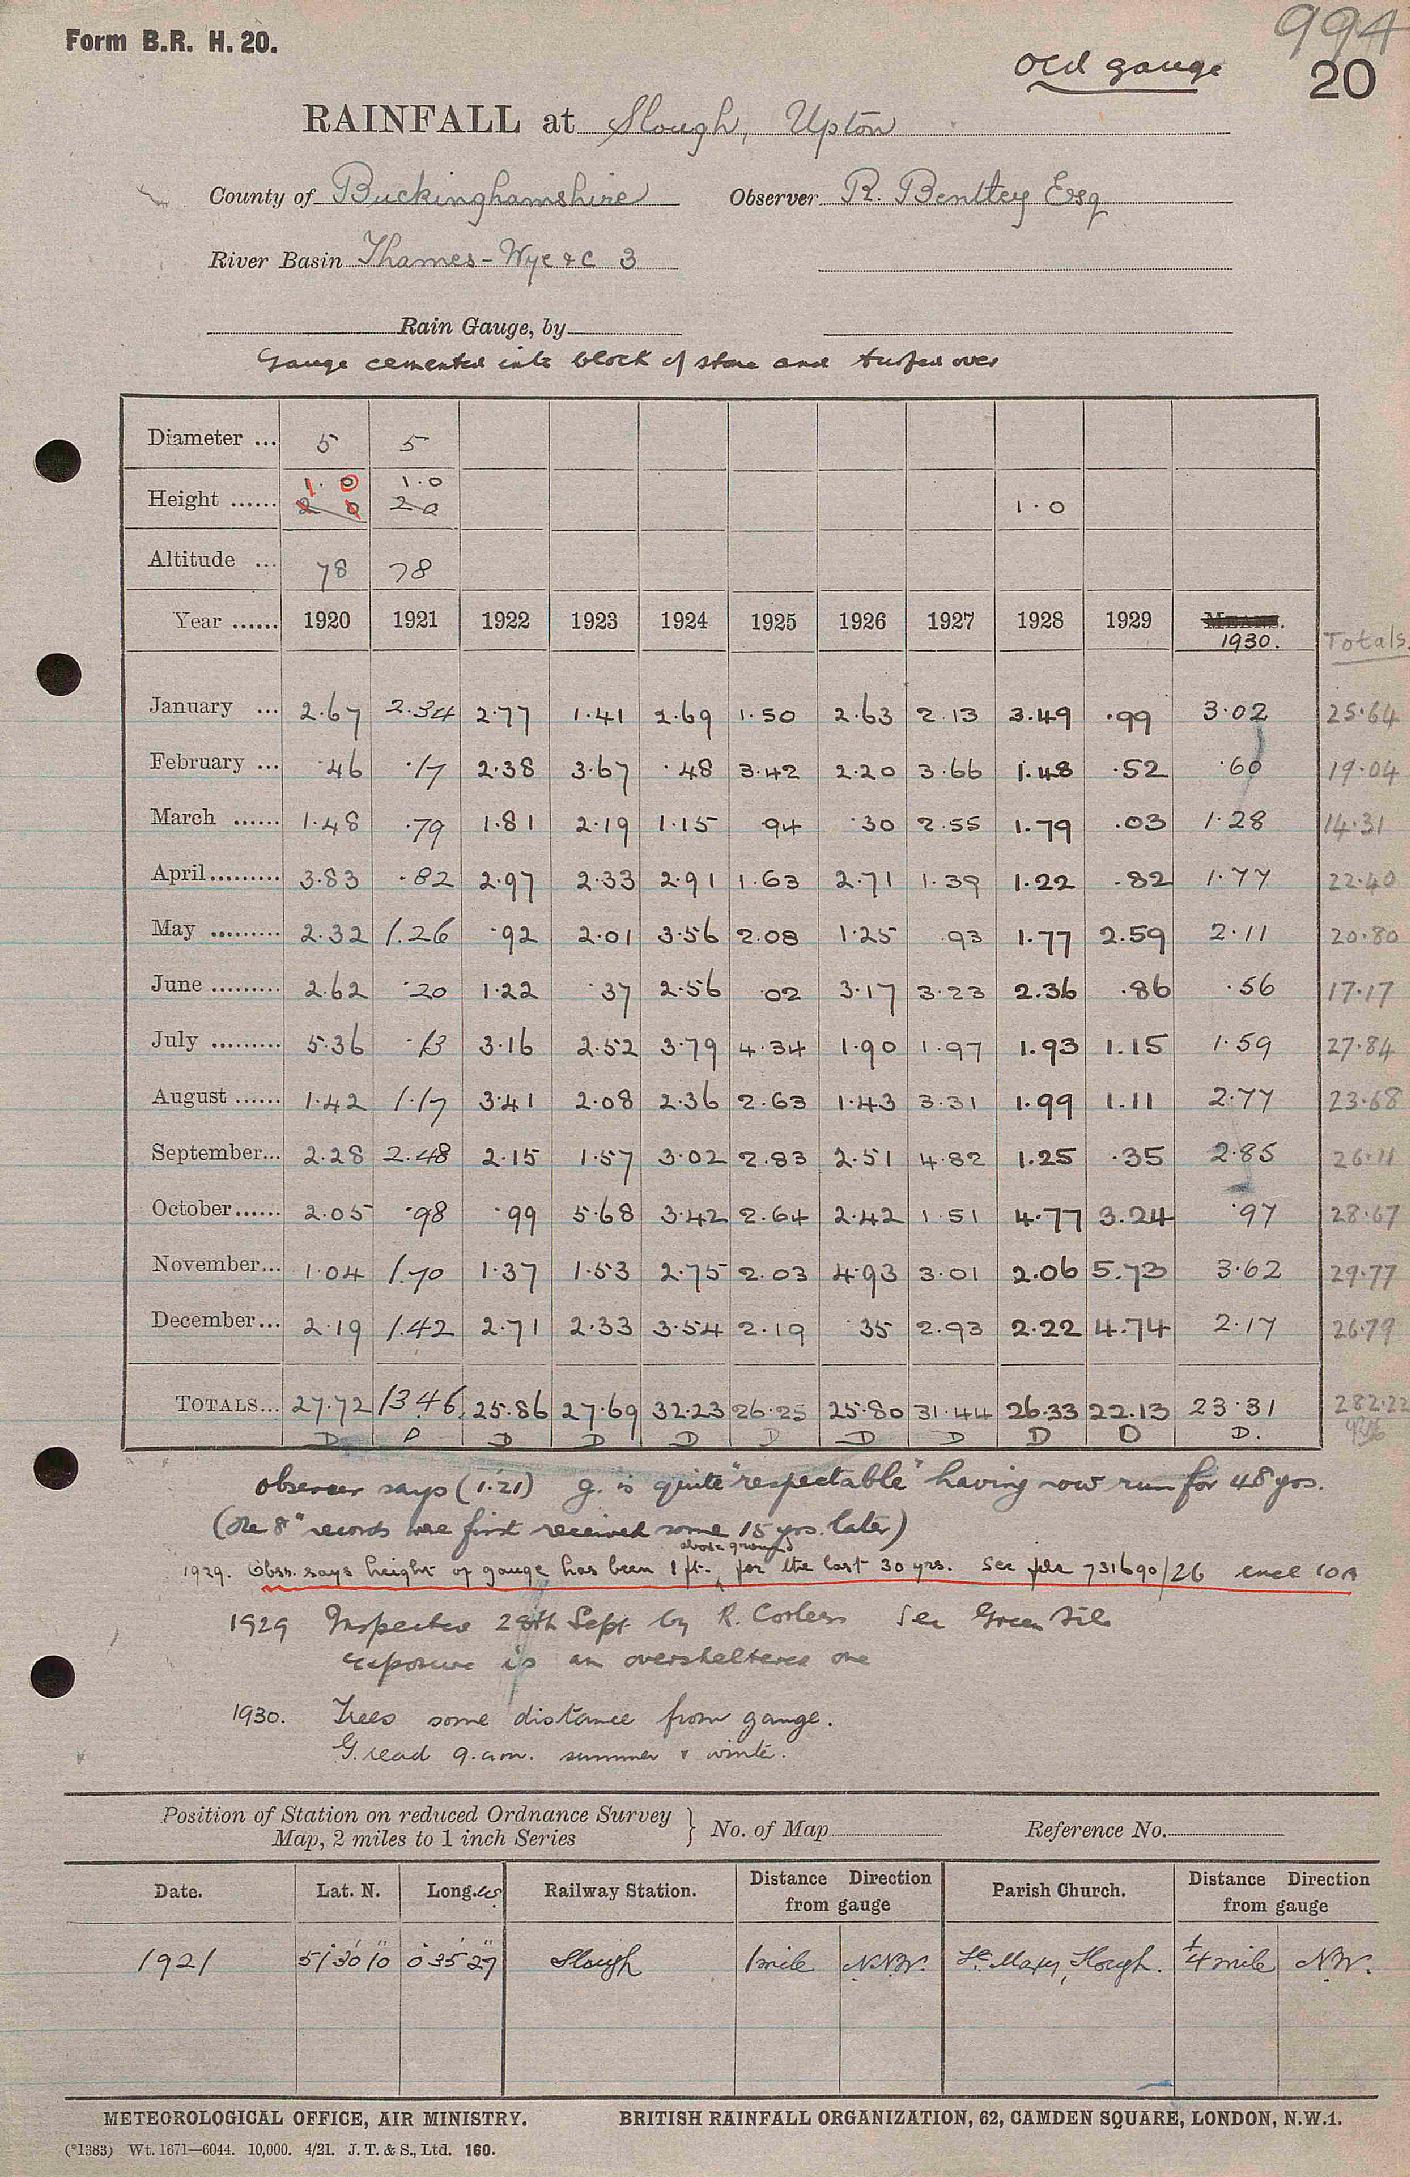 994
Form B.R. H. 20.
Old gauge
20
RAINFALL at Slough, Upton
County of Buckinghamshire Observer R. Bentley Esq
River Basin Thames - Wye &c 3
Rain Gauge, by
Gauge cemented into block of stone and turfed over
Diameter ... 5 5
Height ...... 1.0 1.0
2 0 2 0 1.0
Altitude ... 78 78
Year ...... 1920 1921 1922 1923 1924 1925 1926 1927 1928 1929 MEANS. 1930. Totals.
January ... 2.67 2.34 2.77 1.41 2.69 1.50 2.63 2.13 3.49 .99 3.02 25.64
February ... .46 .17 2.38 3.67 .48 3.42 2.20 3.66 1.48 .52 .60 19.04
March ...... 1.48 .79 1.81 2.19 1.15 94 .30 2.55 1.79 .03 1.28 14.31
April......... 3.83 .82 2.97 2.33 2.91 1.63 2.71 1.39 1.22 .82 1.77 22.40
May ......... 2.32 1.26 .92 2.01 3.56 2.08 1.25 .93 1.77 2.59 2.11 20.80
June ......... 2.62 .20 1.22 .37 2.56 .02 3.17 3.23 2.36 .86 .56 17.17
July ......... 5.36 .13 3.16 2.52 3.79 4.34 1.90 1.97 1.93 1.15 1.59 27.84
August ...... 1.42 1.17 3.41 2.08 2.36 2.63 1.43 3.31 1.99 1.11 2.77 23.68
September... 2.28 2.48 2.15 1.57 3.02 2.83 2.51 4.82 1.25 .35 2.85 26.11
October...... 2.05 .98 .99 5.68 3.42 2.64 2.42 1.51 4.77 3.24 .97 28.67
November... 1.04 1.70 1.37 1.53 2.75 2.03 4.93 3.01 2.06 5.73 3.62 29.77
December... 2.19 1.42 2.71 2.33 3.54 2.19 .35 2.93 2.22 4.74 2.17 26.79
TOTALS... 27.72 13.46 25.86 27.69 32.23 26.25 25.80 31.44 26.33 22.13 23.31 282.22
D D D D D D D D D D D.
observer says (1.21) g. is quite "respectable" having now run for 48 yrs.
(the 8" records were first received some 15 yrs. later)
above ground
1929. Obsr. says height of gauge has been 1 ft. for the last 30 yrs. See file 731690/26 encl 10A
1929 Inspected 28th Sept by R. Corless See Green File
exposure is an oversheltered one
1930. Trees some distance from gauge.
G. read 9. a.m. summer & winter.
Position of Station on reduced Ordnance Survey Map, 2 miles to 1 inch Series } No. of Map Reference No.
Date. Lat. N. Long. W Railway Station. Distance Direction from gauge Parish Church. Distance Direction from gauge
1921 51° 30' 10" 0° 35' 27" Slough 1 mile N.N.W. St. Mary, Slough. 1/4 mile N.W.
METEOROLOGICAL OFFICE, AIR MINISTRY. BRITISH RAINFALL ORGANIZATION, 62, CAMDEN SQUARE, LONDON, N.W.1.
(*1383) Wt. 1671—6044. 10,000. 4/21. J. T. & S., Ltd. 160.